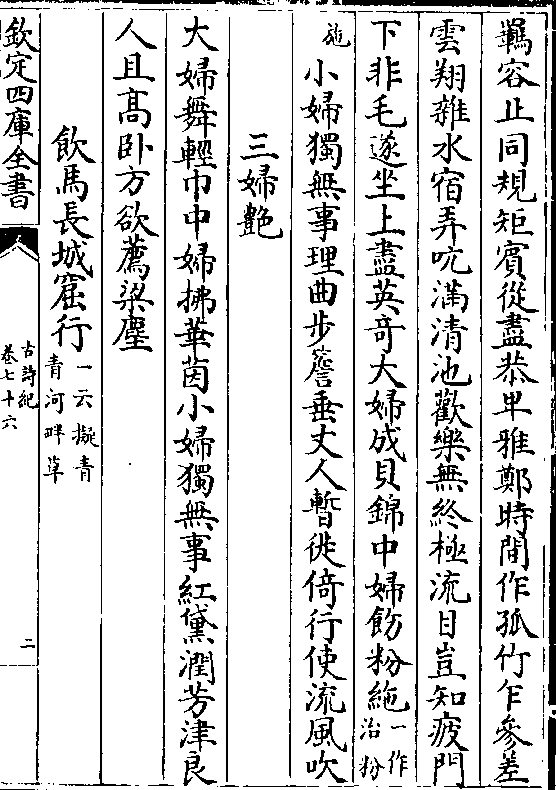 羈容止同規矩賓從盡恭卑雅鄭時間作孤竹乍參差
雲翔雜水宿弄吭滿清池歡樂無終極流目豈知疲門
下非毛遂坐上盡英奇大婦成貝錦中婦飭粉絁一作治粉
絁小婦獨無事理曲步簷垂丈人暫徙倚行使流風吹
三婦艶
大婦舞輕巾中婦拂華茵小婦獨無事紅黛潤芳津良
人且髙卧方欲薦梁塵
飲馬長城窟行一云擬青青河畔草
欽定四庫全書
古詩紀
卷七十六
二